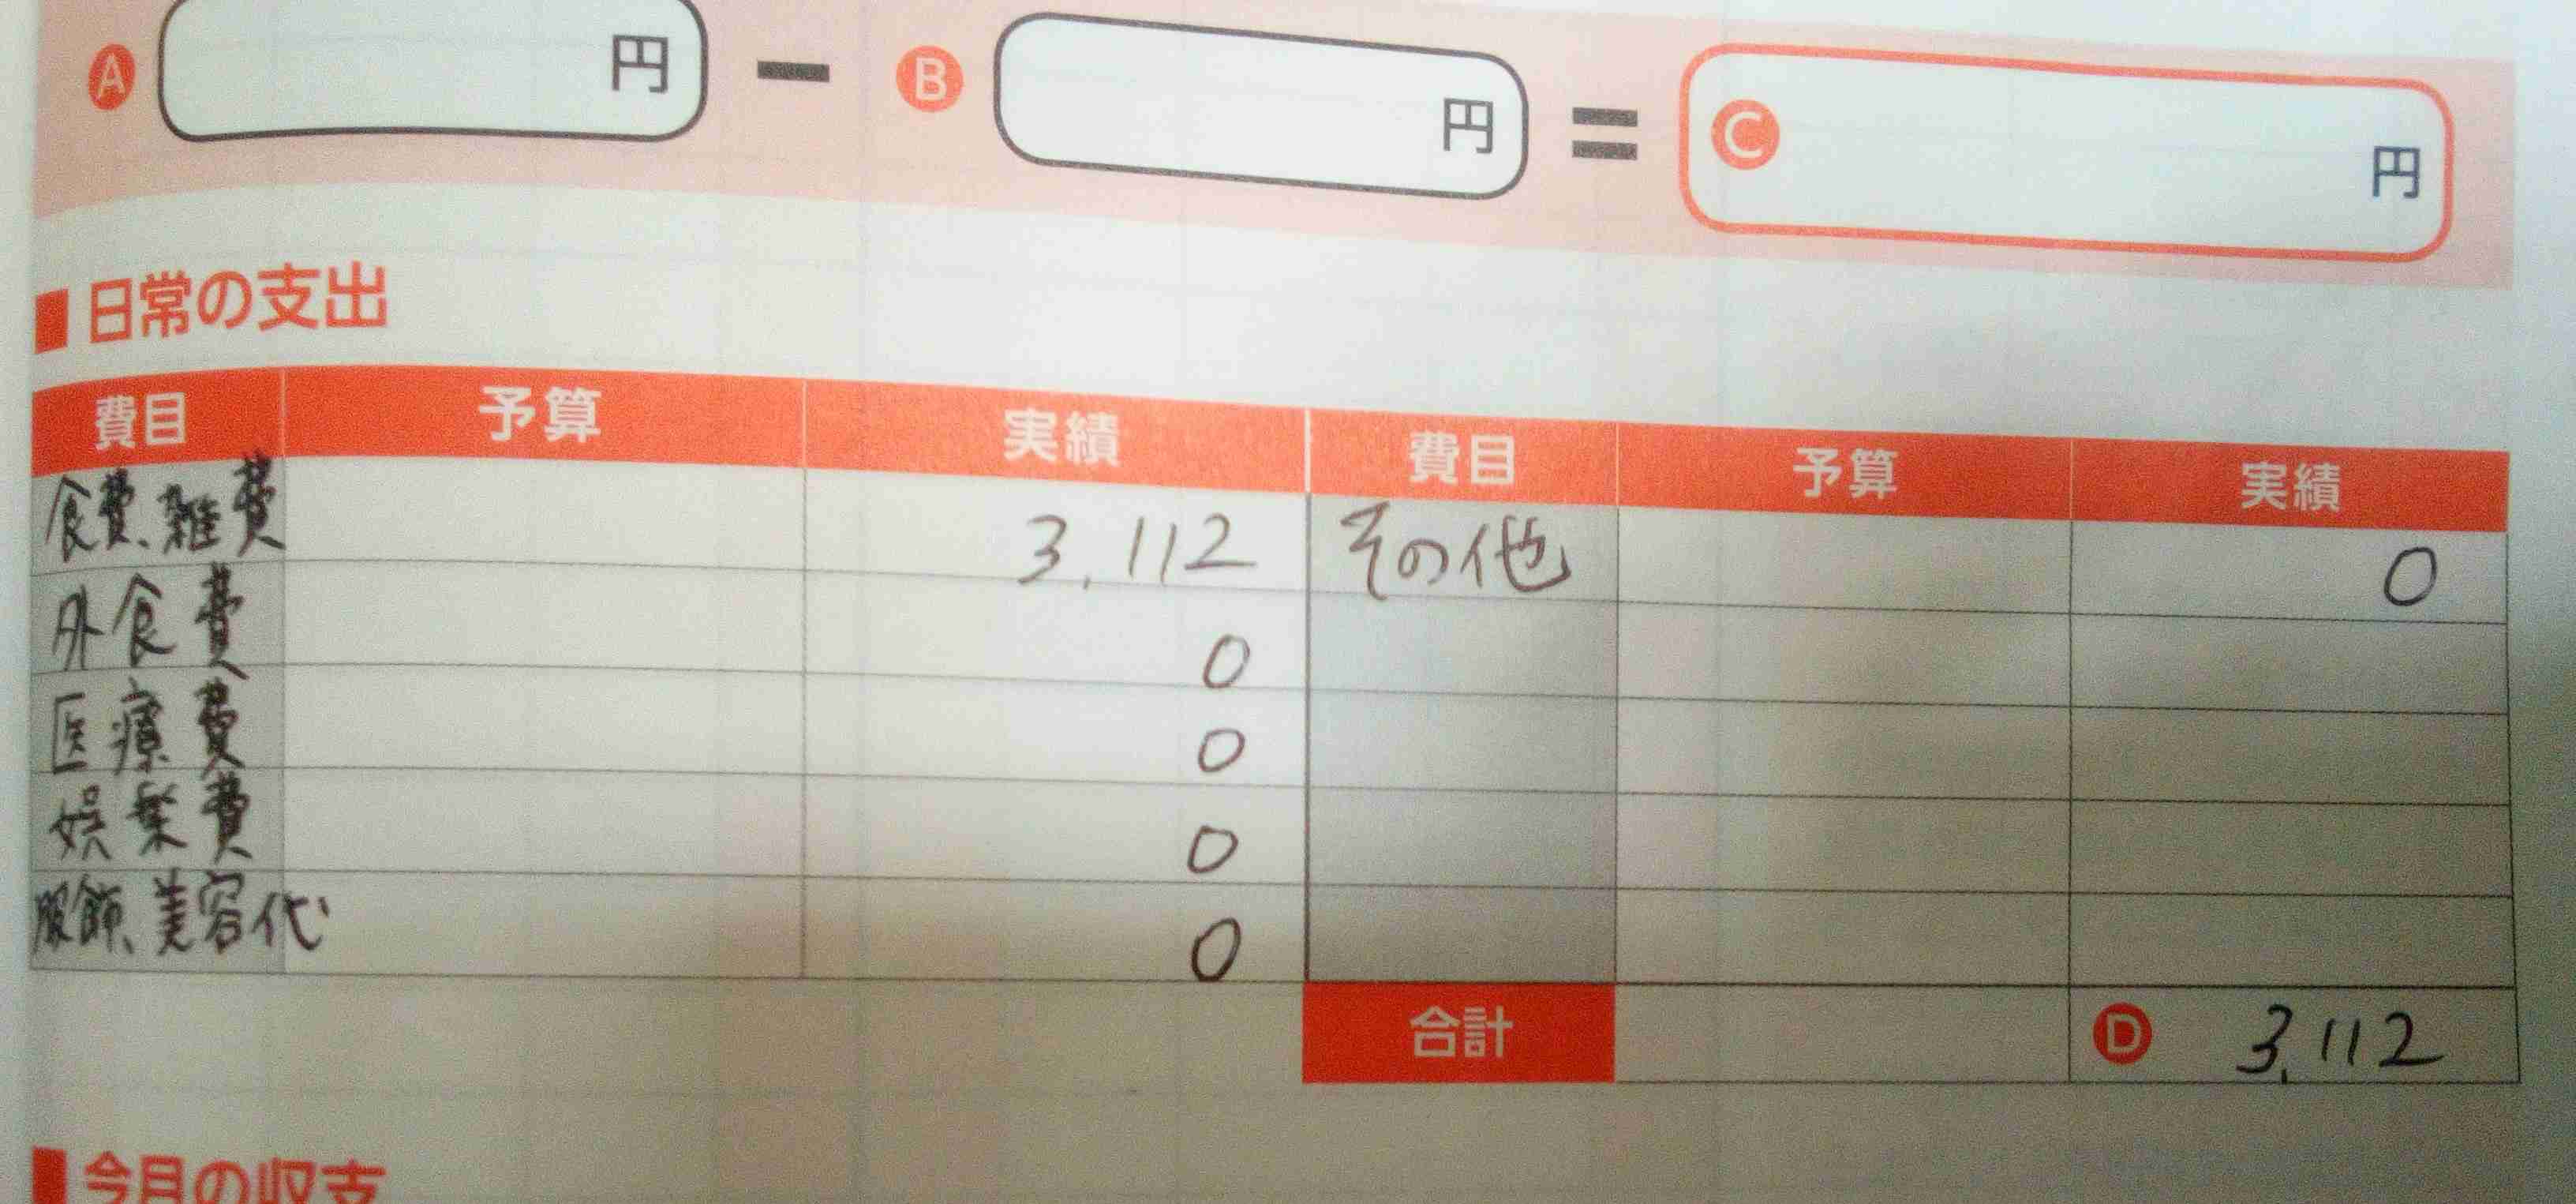 A 円 － B 円 ＝ C 円
■日常の支出
費目 予算 実績 費目 予算 実績
食費、雑費 3,112 その他 0
外食費 0
医療費 0
娯楽費 0
服飾、美容代 0
合計 D 3,112
■今月の収支